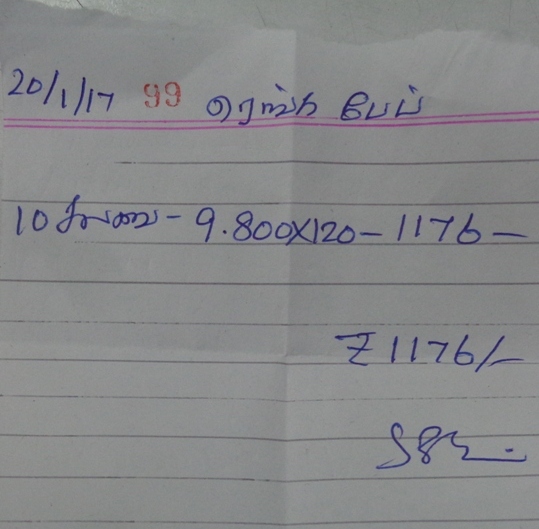 20/1/17 99 ரெங்க பேப்
10 சிலவை - 9.800X120 - 1176 -
₹1176/-